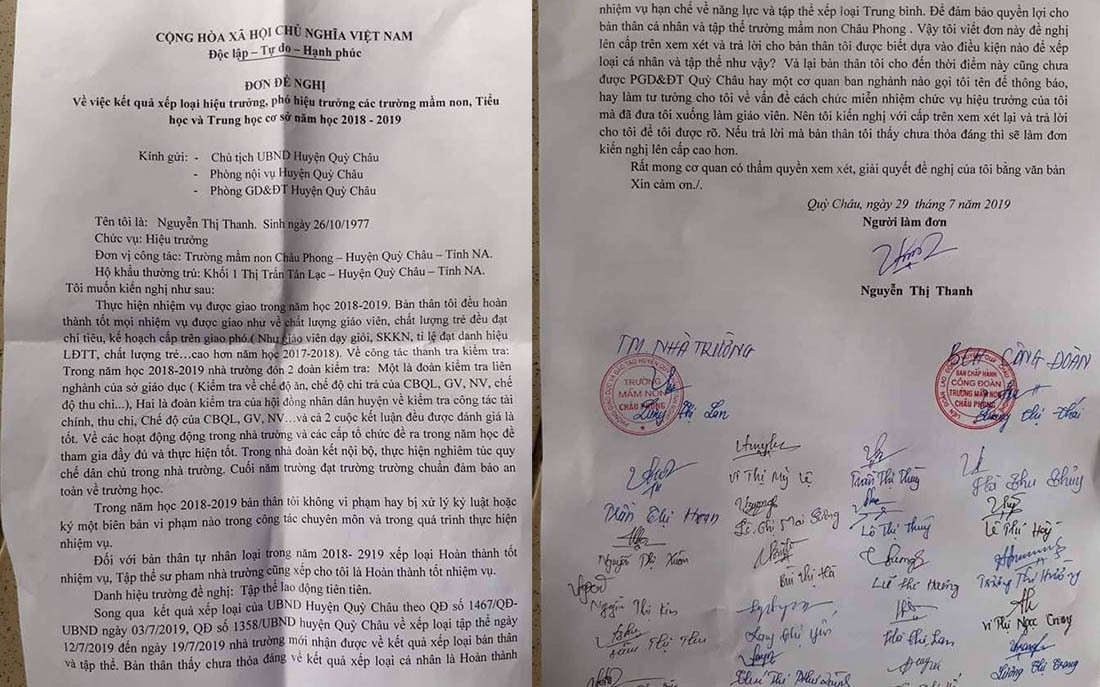 CỘNG HÒA XÃ HỘI CHỦ NGHĨA VIỆT NAM
Độc lập – Tự do – Hạnh phúc
ĐƠN ĐỀ NGHỊ
Về việc kết quả xếp loại hiệu trưởng, phó hiệu trưởng các trường mầm non, Tiểu
học và Trung học cơ sở năm học 2018 - 2019
Kính gửi: - Chủ tịch UBND Huyện Quỳ Châu
- Phòng nội vụ Huyện Quỳ Châu
- Phòng GD&ĐT Huyện Quỳ Châu
Tên tôi là: Nguyễn Thị Thanh. Sinh ngày 26/10/1977
Chức vụ: Hiệu trưởng
Đơn vị công tác: Trường mầm non Châu Phong – Huyện Quỳ Châu – Tỉnh NA.
Hộ khẩu thường trú: Khối 1 Thị Trấn Tân Lạc – Huyện Quỳ Châu – Tỉnh NA.
Tôi muốn kiến nghị như sau:
Thực hiện nhiệm vụ được giao trong năm học 2018-2019. Bản thân tôi đều hoàn
thành tốt mọi nhiệm vụ được giao như về chất lượng giáo viên, chất lượng trẻ đều đạt
chỉ tiêu, kế hoạch cấp trên giao phó.( Như giáo viên dạy giỏi, SKKN, tỉ lệ đạt danh hiệu
LĐTT, chất lượng trẻ…cao hơn năm học 2017-2018). Về công tác thanh tra kiểm tra:
Trong năm học 2018-2019 nhà trường đón 2 đoàn kiểm tra: Một là đoàn kiểm tra liên
nghành của sở giáo dục ( Kiểm tra về chế độ ăn, chế độ chi trả của CBQL, GV, NV, chế
độ thu chi...), Hai là đoàn kiểm tra của hội đồng nhân dân huyện về kiểm tra công tác tài
chính, thu chi, Chế độ của CBQL, GV, NV…và cả 2 cuộc kết luận đều được đánh giá là
tốt. Về các hoạt động động trong nhà trường và các cấp tổ chức đề ra trong năm học đề
tham gia đầy đủ và thực hiện tốt. Trong nhà đoàn kết nội bộ, thực hiện nghiêm túc quy
chế dân chủ trong nhà trường. Cuối năm trường đạt trường trường chuẩn đảm bảo an
toàn về trường học.
Trong năm học 2018-2019 bản thân tôi không vi phạm hay bị xử lý kỷ luật hoặc
ký một biên bản vi phạm nào trong công tác chuyên môn và trong quá trình thực hiện
nhiệm vụ.
Đối với bản thân tự nhân loại trong năm 2018- 2919 xếp loại Hoàn thành tốt
nhiệm vụ, Tập thể sư pham nhà trường cũng xếp cho tôi là Hoàn thành tốt nhiệm vụ.
Danh hiệu trường đề nghị: Tập thể lao động tiên tiên.
Song qua kết quả xếp loại của UBND Huyện Quỳ Châu theo QĐ số 1467/QĐ-
UBND ngày 03/7/2019, QĐ số 1358/UBND huyện Quỳ Châu về xếp loại tập thể ngày
12/7/2019 đến ngày 19/7/2019 nhà trường mới nhận được về kết quả xếp loại bản thân
và tập thể. Bản thân thấy chưa thỏa đáng về kết quả xếp loại cá nhân là Hoàn thành
nhiệm vụ hạn chế về năng lực và tập thể xếp loại Trung bình. Để đảm bảo quyền lợi cho
bản thân cá nhân và tập thể trường mầm non Châu Phong . Vậy tôi viết đơn này đề nghị
lên cấp trên xem xét và trả lời cho bản thân tôi được biết dựa vào điều kiện nào để xếp
loại cá nhân và tập thể như vậy? Và lại bản thân tôi cho đến thời điểm này cũng chưa
được PGD&ĐT Quỳ Châu hay một cơ quan ban nghành nào gọi tôi tên để thông báo,
hay làm tư tưởng cho tôi về vấn đề cách chức miễn nhiệm chức vụ hiệu trưởng của tôi
mà đã đưa tôi xuống làm giáo viên. Nên tôi kiến nghị với cấp trên xem xét lại và trả lời
cho tôi để tôi được rõ. Nếu trả lời mà bản thân tôi thấy chưa thỏa đáng thì sẽ làm đơn
kiến nghị lên cấp cao hơn.
Rất mong cơ quan có thẩm quyền xem xét, giải quyết đề nghị của tôi bằng văn bản
Xin cảm ơn./.
Quỳ Châu, ngày 29 tháng 7 năm 2019
Người làm đơn
Nguyễn Thị Thanh
TM NHÀ TRƯỜNG
BCH CÔNG ĐOÀN
TRƯỜNG
MẦM NON
CHÂU PHONG
Thị Lan
BAN CHẤP HÀNH
CÔNG ĐOÀN
TRƯỜNG MẦM NON
CHÂU PHONG
Thị Thái
Vi Thị Mỹ Lệ
Trần Thị Thùy
Hà Thu Thủy
Trần Thị Hoan
Lê Thị Mai Sương
Lô Thị Thủy
Lê Thị
Nguyễn Thị Xuân
Bùi Thị Hà
Lữ Thị Hương
Trương Thị Hường
Nguyễn Thị Kim
Lang Thị Yến
Hà Thị Lan
Vi Thị Ngọc
Thị Thu
Lương Thị Trang